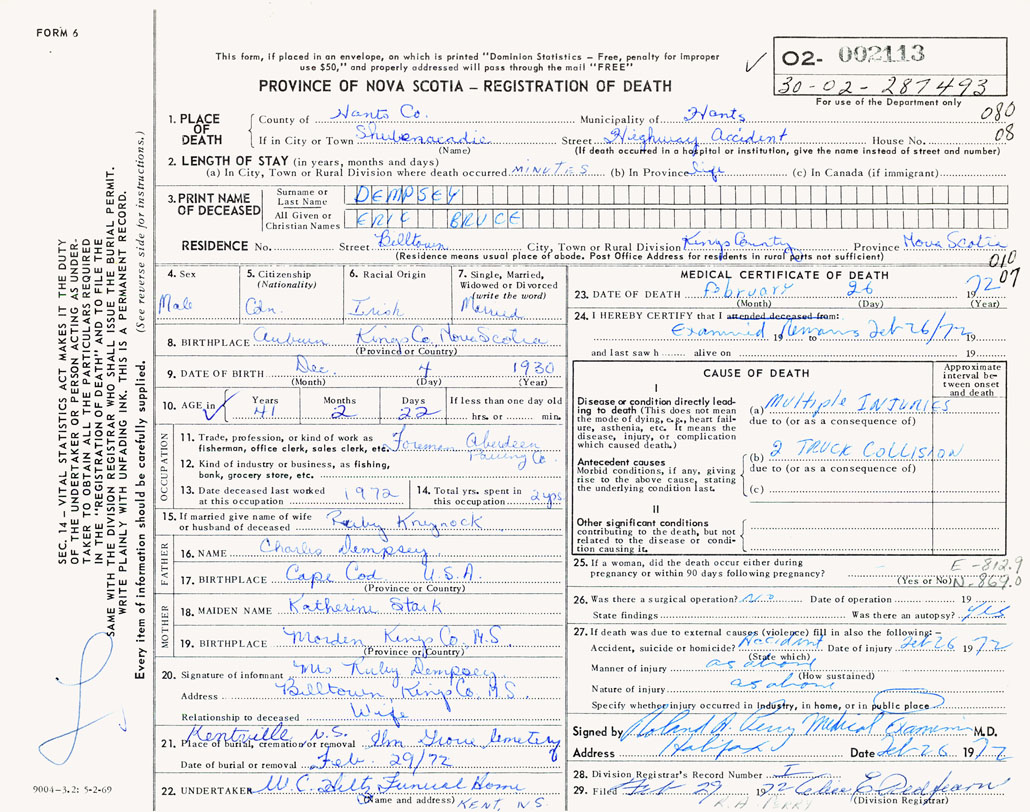 FORM 6
This form, if placed in an envelope, on which is printed "Dominion Statistics – Free, penalty for improper
use $50," and properly addressed will pass through the mail "FREE"
PROVINCE OF NOVA SCOTIA – REGISTRATION OF DEATH
✓ 02- 002113
30-02-287493
For use of the Department only
080
08
1. PLACE OF DEATH
County of Hants Co. Municipality of Hants
If in City or Town Shubenacadie Street Highway Accident House No.
(Name) (If death occurred in a hospital or institution, give the name instead of street and number)
2. LENGTH OF STAY (in years, months and days)
(a) In City, Town or Rural Division where death occurred MINUTES (b) In Province life (c) In Canada (if immigrant)
3. PRINT NAME OF DECEASED
Surname or Last Name DEMPSEY
All Given or Christian Names ERIC BRUCE
RESIDENCE No. Street Billtown City, Town or Rural Division Kings County Province Nova Scotia
(Residence means usual place of abode. Post Office Address for residents in rural parts not sufficient)
010
07
4. Sex
Male
5. Citizenship
(Nationality)
Cdn.
6. Racial Origin
Irish
7. Single, Married,
Widowed or Divorced
(write the word)
Married
8. BIRTHPLACE Auburn Kings Co. Nova Scotia
(Province or Country)
9. DATE OF BIRTH Dec. 4 1930
(Month) (Day) (Year)
10. AGE in ✓ Years 41 Months 2 Days 22 If less than one day old
hrs. or min.
OCCUPATION
11. Trade, profession, or kind of work as
fisherman, office clerk, sales clerk, etc. Foreman Aberdeen
Paving Co.
12. Kind of industry or business, as fishing,
bank, grocery store, etc.
13. Date deceased last worked
at this occupation 1972
14. Total yrs. spent in
this occupation 2 yrs
15. If married give name of wife
or husband of deceased Ruby
FATHER
16. NAME Charles Dempsey
17. BIRTHPLACE Cape Cod U.S.A.
(Province or Country)
MOTHER
18. MAIDEN NAME Katherine Stark
19. BIRTHPLACE Morden Kings Co. N.S
(Province or Country)
20. Signature of informant Mrs Ruby Dempsey
Address Billtown, Kings Co, N.S.
Relationship to deceased Wife
Kentville N.S.
21. Place of burial, cremation or removal Elm Grove Cemetery
Date of burial or removal Feb. 29/72
22. UNDERTAKER W.C. Hiltz Funeral Home
(Name and address) KENT, NS.
MEDICAL CERTIFICATE OF DEATH
23. DATE OF DEATH February 26 1972
(Month) (Day) (Year)
24. I HEREBY CERTIFY that I attended deceased from:
Examined Remains Feb 26/72
19 to 19
and last saw h alive on 19
CAUSE OF DEATH
Approximate
interval be-
tween onset
and death
I
Disease or condition directly lead-
ing to death (This does not mean
the mode of dying, e.g., heart fail-
ure, asthenia, etc. It means the
disease, injury, or complication
which caused death.)
(a) MULTIPLE INJURIES
due to (or as a consequence of)
Antecedent causes
Morbid conditions, if any, giving
rise to the above cause, stating
the underlying condition last.
(b) 2 TRUCK COLLISION
due to (or as a consequence of)
(c)
II
Other significant conditions
contributing to the death, but not
related to the disease or condi-
tion causing it.
25. If a woman, did the death occur either during
pregnancy or within 90 days following pregnancy?
(Yes or No)
E-812.9
N-869.0
26. Was there a surgical operation? No Date of operation 19
State findings Was there an autopsy? Yes
27. If death was due to external causes (violence) fill in also the following:–
Accident, suicide or homicide? Accident Date of injury Feb 26 1972
(State which)
Manner of injury as above
(How sustained)
Nature of injury as above
Specify whether injury occurred in industry, in home, or in public place
Signed by Roland A. Perry Medical Examiner M.D.
Address Halifax Date Feb 26 1972
28. Division Registrar's Record Number I
29. Filed Feb 29 1972
(Division Registrar)
R.A. PERRY
SEC. 14 – VITAL STATISTICS ACT MAKES IT THE DUTY
OF THE UNDERTAKER OR PERSON ACTING AS UNDER-
TAKER TO OBTAIN ALL THE PARTICULARS REQUIRED
IN THE "REGISTRATION OF DEATH" AND TO FILE THE
SAME WITH THE DIVISION REGISTRAR WHO SHALL ISSUE THE BURIAL PERMIT.
WRITE PLAINLY WITH UNFADING INK. THIS IS A PERMANENT RECORD.
Every item of information should be carefully supplied. (See reverse side for instructions.)
9004-3.2: 5-2-69